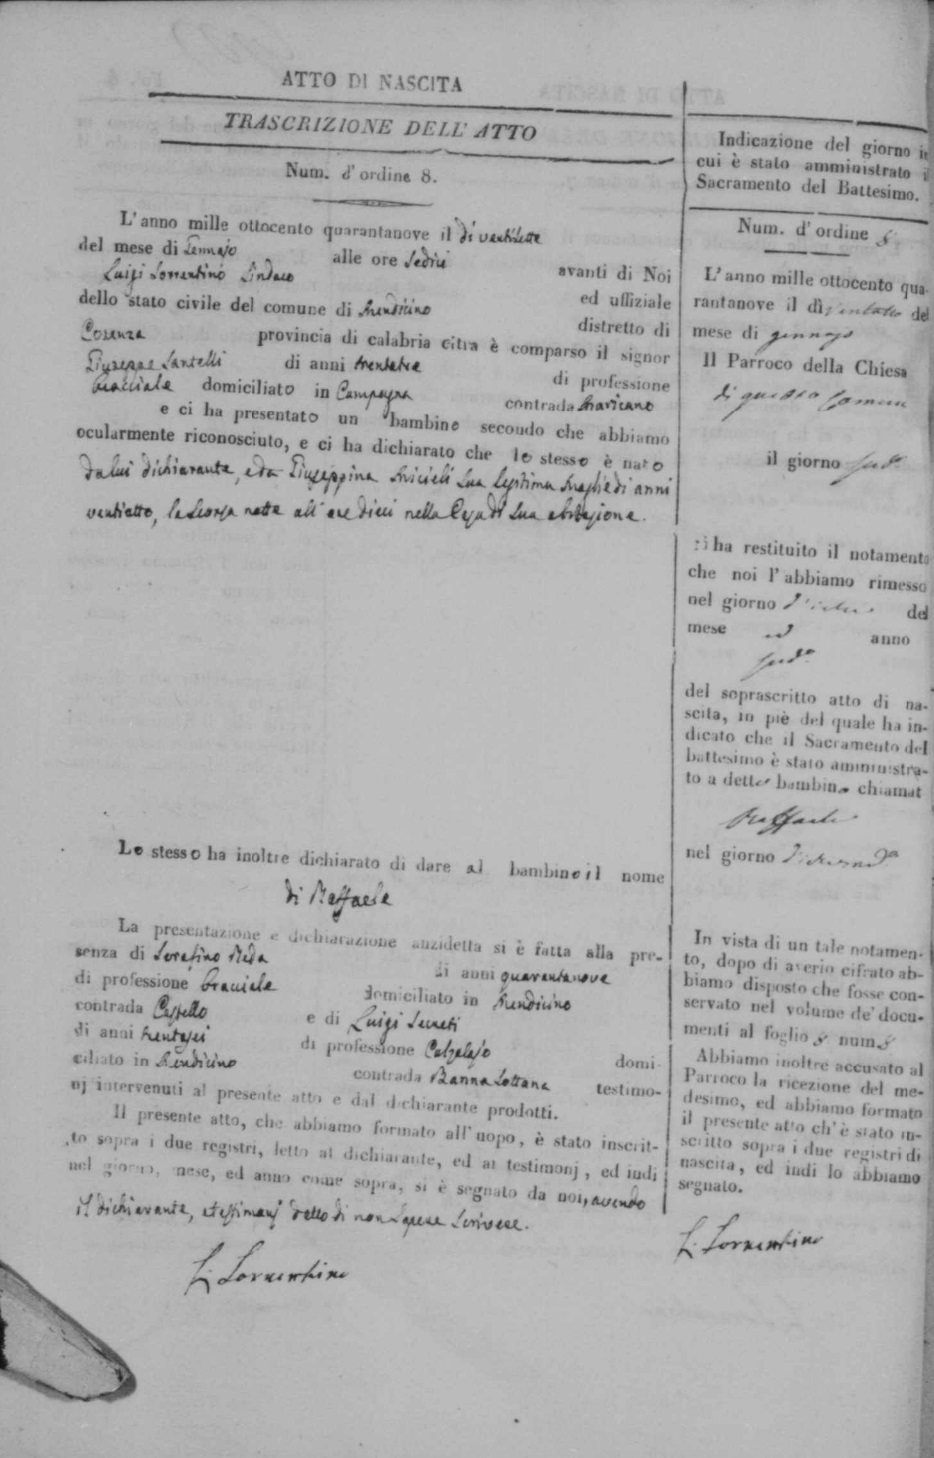 ATTO DI NASCITA
TRASCRIZIONE DELL' ATTO
Num. d' ordine 8.
L' anno mille ottocento quarantanove il dì ventisette
del mese di Gennajo alle ore Sedici avanti di Noi
Luigi Sorrentino Sindaco ed uffiziale
dello stato civile del comune di Mendicino distretto di
Cosenza provincia di calabria citra è comparso il signor
Giuseppe Santelli di anni trentatre di professione
bracciale domiciliato in Campagna contrada
e ci ha presentato un bambino secondo che abbiamo
ocularmente riconosciuto, e ci ha dichiarato che lo stesso è nato
da lui dichiarante, e da Giuseppina sua legittima moglie di anni
ventiotto, la scorsa notte all' ore dieci nella Casa di sua abitazione.
Lo stesso ha inoltre dichiarato di dare al bambino il nome
di Raffaele
La presentazione e dichiarazione anzidetta si è fatta alla pre-
senza di Serafino di anni quarantanove
di professione bracciale domiciliato in Mendicino
contrada Castello e di Luigi
di anni trentasei di professione Calzolajo domi-
ciliato in Mendicino contrada testimo-
nj intervenuti al presente atto e dal dichiarante prodotti.
Il presente atto, che abbiamo formato all' uopo, è stato inscrit-
to sopra i due registri, letto al dichiarante, ed ai testimonj, ed indi
nel giorno, mese, ed anno come sopra, si è segnato da noi, avendo
il dichiarante, e testimonj detto di non sapere scrivere.
L. Sorrentino
Indicazione del giorno in
cui è stato amministrato il
Sacramento del Battesimo.
Num. d' ordine 8
L' anno mille ottocento qua-
rantanove il dì ventotto del
mese di gennajo
Il Parroco della Chiesa
di questo Comune
il giorno sud.o
ci ha restituito il notamento
che noi l' abbiamo rimesso
nel giorno del
mese ed anno
sud.o
del soprascritto atto di na-
scita, in piè del quale ha in-
dicato che il Sacramento del
battesimo è stato amministra-
to a detto bambino chiamat
Raffaele
nel giorno
In vista di un tale notamen-
to, dopo di averlo cifrato ab-
biamo disposto che fosse con-
servato nel volume de' docu-
menti al foglio 8 num 8
Abbiamo inoltre accusato al
Parroco la ricezione del me-
desimo, ed abbiamo formato
il presente atto ch' è stato in-
scritto sopra i due registri di
nascita, ed indi lo abbiamo
segnato.
L. Sorrentino